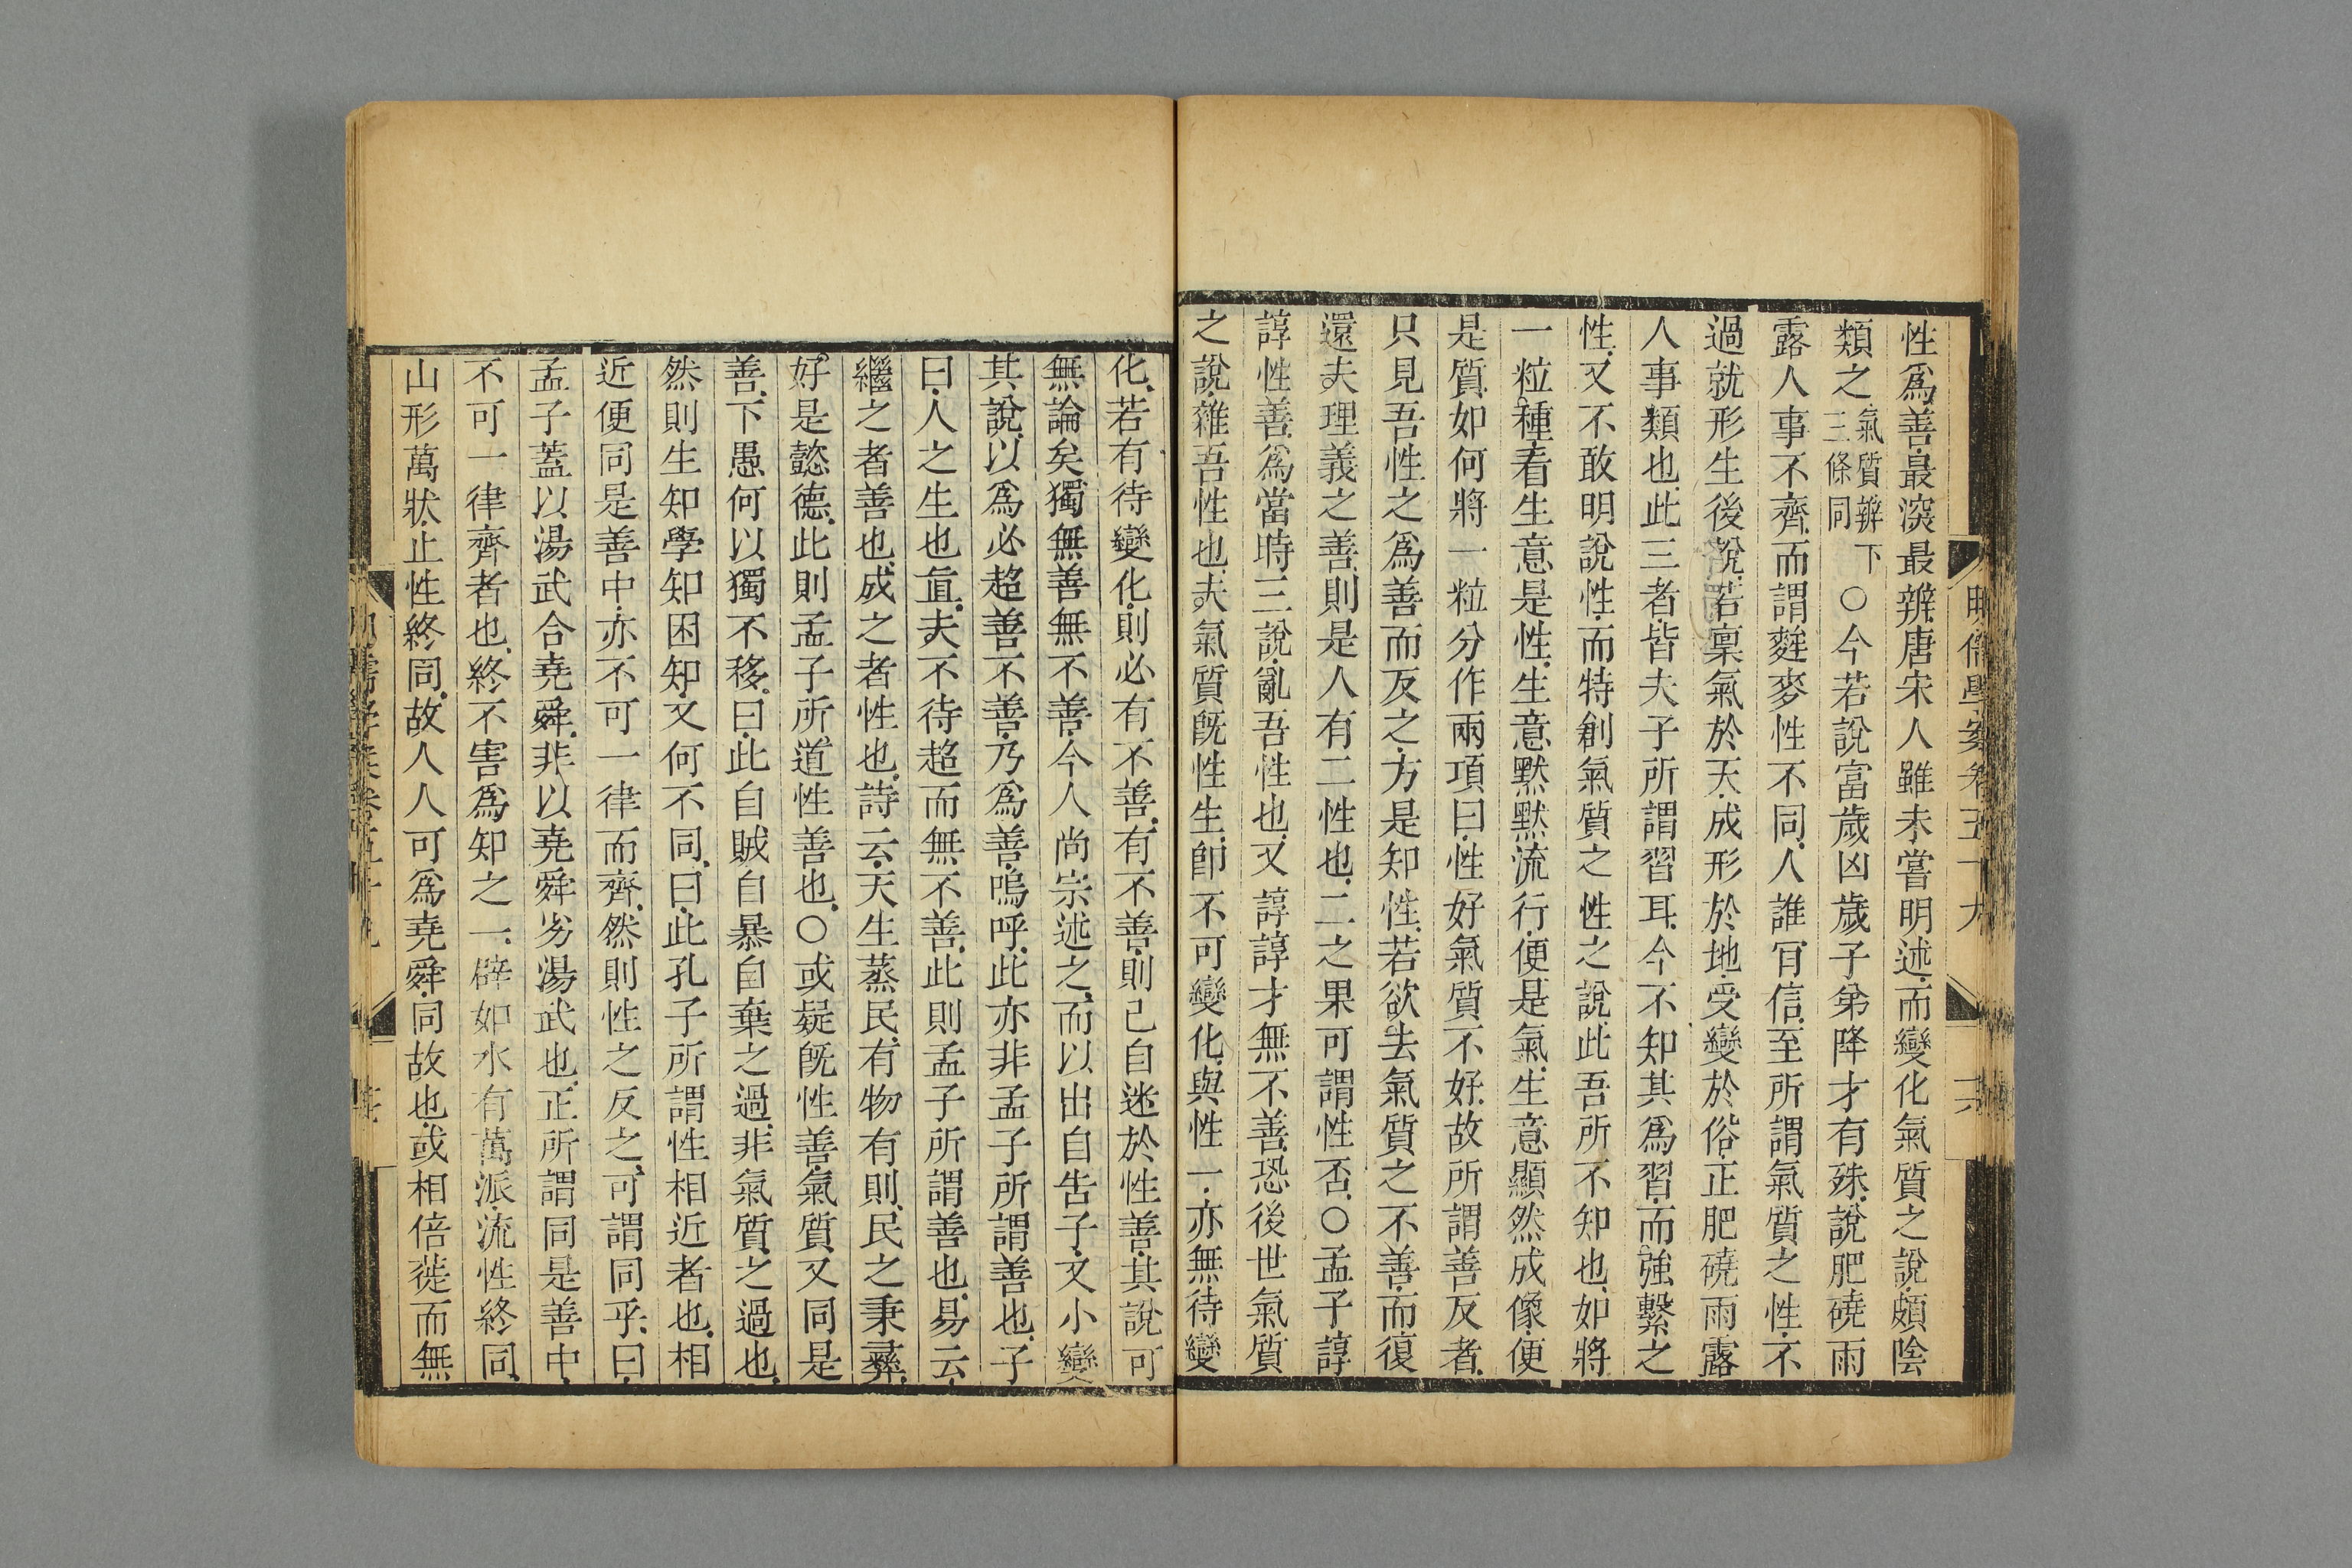 明儒學案卷五十九
十六
性爲善最深最辨唐宋人雖未嘗明述而變化氣質之說頗陰
類之氣質辨下三條同○今若說富歲凶歲子弟降才有殊說肥磽雨
露人事不齊而謂麰麥性不同人誰肎信至所謂氣質之性不
過就形生後說若稟氣於天成形於地受變於俗正肥磽雨露
人事類也此三者皆夫子所謂習耳今不知其爲習而強繫之
性又不敢明說性而特創氣質之性之說此吾所不知也如將
一粒種看生意是性生意默默流行便是氣生意顯然成像便
是質如何將一粒分作兩項曰性好氣質不好故所謂善反者
只見吾性之爲善而反之方是知性若欲去氣質之不善而復
還夫理義之善則是人有二性也二之果可謂性否○孟子諄
諄性善爲當時三說亂吾性也又諄諄才無不善恐後世氣質
之說雜吾性也夫氣質既性生卽不可變化與性一亦無待變
化若有待變化則必有不善有不善則己自迷於性善其說可
無論矣獨無善無不善今人尚宗述之而以出自告子又小變
其說以爲必超善不善乃爲善嗚呼此亦非孟子所謂善也子
曰人之生也直夫不待超而無不善此則孟子所謂善也易云
繼之者善也成之者性也詩云天生蒸民有物有則民之秉彝
好是懿德此則孟子所道性善也○或疑旣性善氣質又同是
善下愚何以獨不移曰此自賊自暴自棄之過非氣質之過也
然則生知學知困知又何不同曰此孔子所謂性相近者也相
近便同是善中亦不可一律而齊然則性之反之可謂同乎曰
孟子蓋以湯武合堯舜非以堯舜劣湯武也正所謂同是善中
不可一律齊者也終不害爲知之一辟如水有萬派流性終同
山形萬狀止性終同故人人可爲堯舜同故也或相倍蓰而無